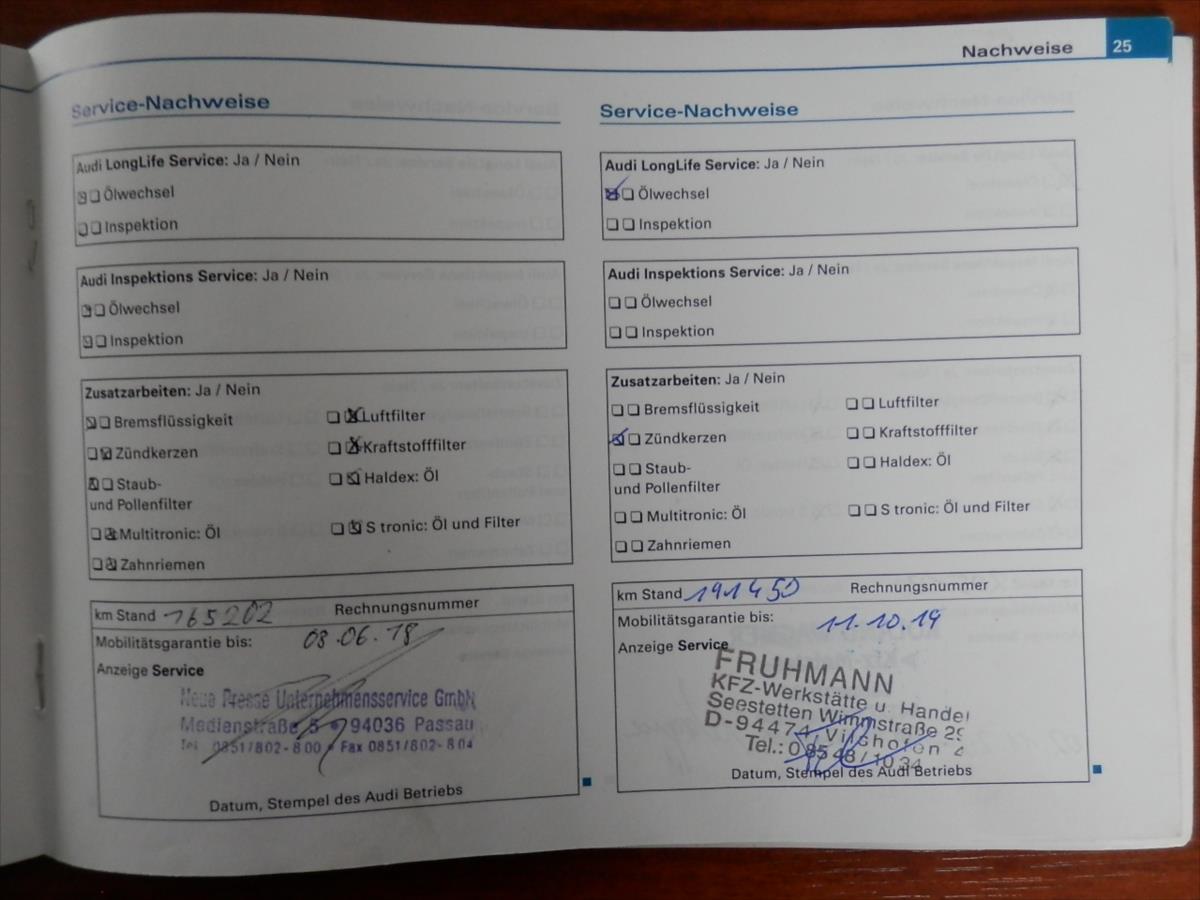 Nachweise 25
Service-Nachweise
Audi LongLife Service: Ja / Nein
Ölwechsel
Inspektion
Audi Inspektions Service: Ja / Nein
Ölwechsel
Inspektion
Zusatzarbeiten: Ja / Nein
Bremsflüssigkeit
Luftfilter
Zündkerzen
Kraftstofffilter
Staub-
und Pollenfilter
Haldex: Öl
Multitronic: Öl
S tronic: Öl und Filter
Zahnriemen
km Stand 165202 Rechnungsnummer
Mobilitätsgarantie bis: 08.06.18
Anzeige Service
Neue Presse Unternehmensservice GmbH
Medienstraße 5 • 94036 Passau
Tel. 0851/802-800 • Fax 0851/802-804
Datum, Stempel des Audi Betriebs
Service-Nachweise
Audi LongLife Service: Ja / Nein
Ölwechsel
Inspektion
Audi Inspektions Service: Ja / Nein
Ölwechsel
Inspektion
Zusatzarbeiten: Ja / Nein
Bremsflüssigkeit
Luftfilter
Zündkerzen
Kraftstofffilter
Staub-
und Pollenfilter
Haldex: Öl
Multitronic: Öl
S tronic: Öl und Filter
Zahnriemen
km Stand 191450 Rechnungsnummer
Mobilitätsgarantie bis: 11.10.19
Anzeige Service
FRUHMANN
KFZ-Werkstätte u. Handel
Seestetten Wimmstraße 29
D-94474 Vilshofen
Tel.: 08548/1034
Datum, Stempel des Audi Betriebs